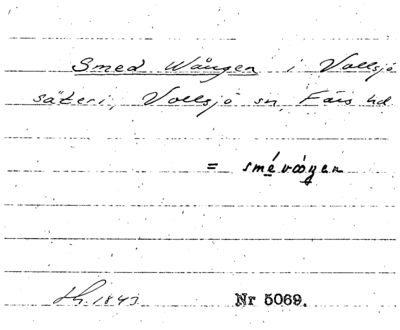 Smed Wången i Vollsjö
säteri, Vollsjö sn, Färs hd
= smévången
1843
Nr 5069.